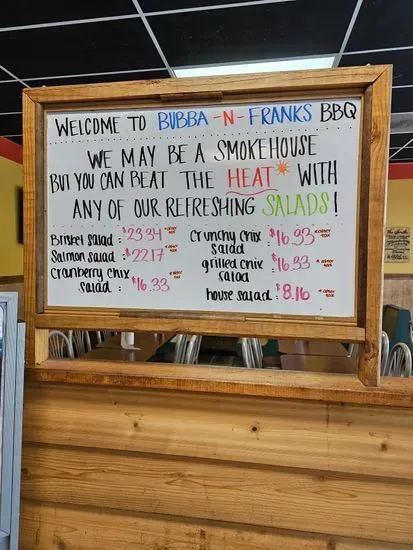 WELCOME TO BUBBA-N-FRANKS BBQ
WE MAY BE A SMOKEHOUSE
BUT YOU CAN BEAT THE HEAT WITH
ANY OF OUR REFRESHING SALADS!
Brisket Salad: $23.34
Salmon Salad: $22.17
Cranberry Chix
Salad: $16.33
Crunchy Chix
Salad $16.33
grilled Chix
Salad $16.33
house Salad: $8.16